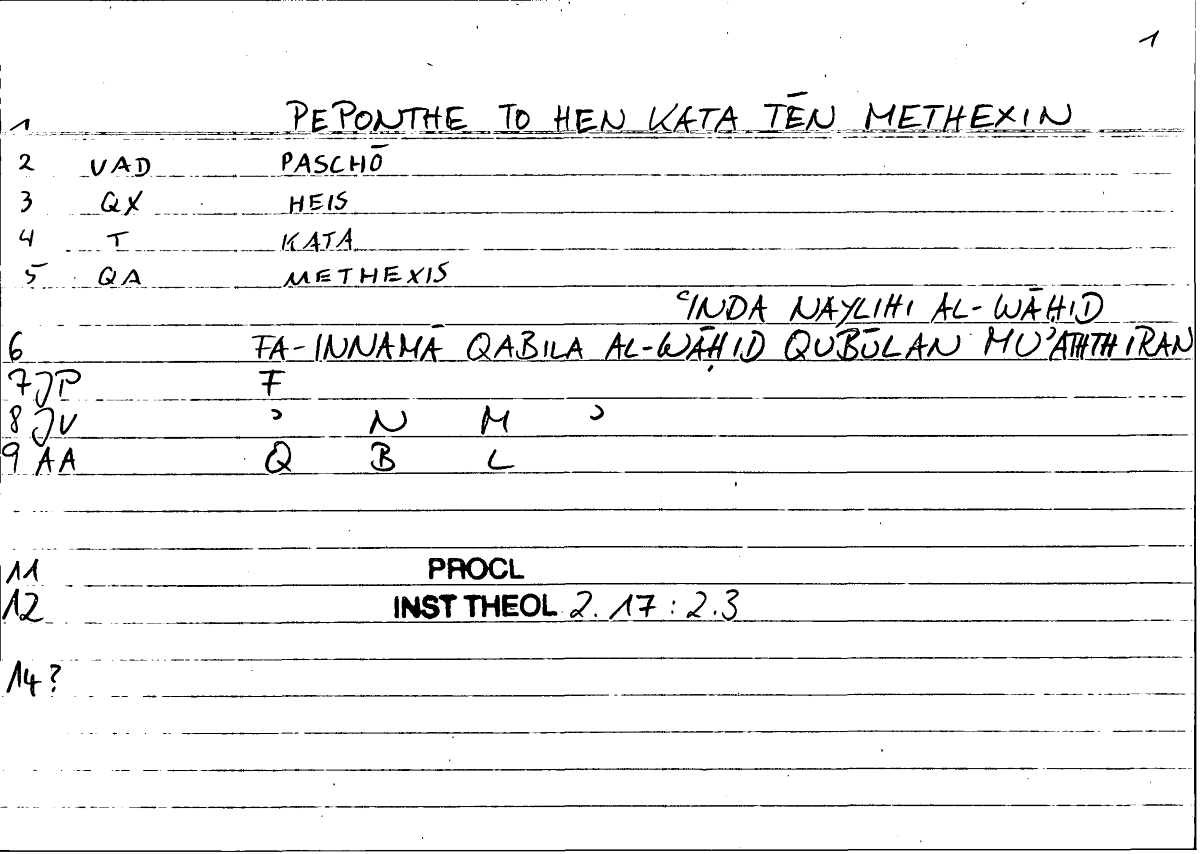 1
1 PEPONTHE TO HEN KATA TĒN METHEXIN
2 VAD PASCHŌ
3 QX HEIS
4 T KATA
5 QA METHEXIS
ʿINDA NAYLIHI AL-WĀḤID
6 FA-INNAMĀ QABILA AL-WĀḤID QUBŪLAN MUʾATHTHIRAN
7 JP F
8 JV ʾ N M ʾ
9 AA Q B L
11 PROCL
12 INST THEOL 2.17:2.3
14?